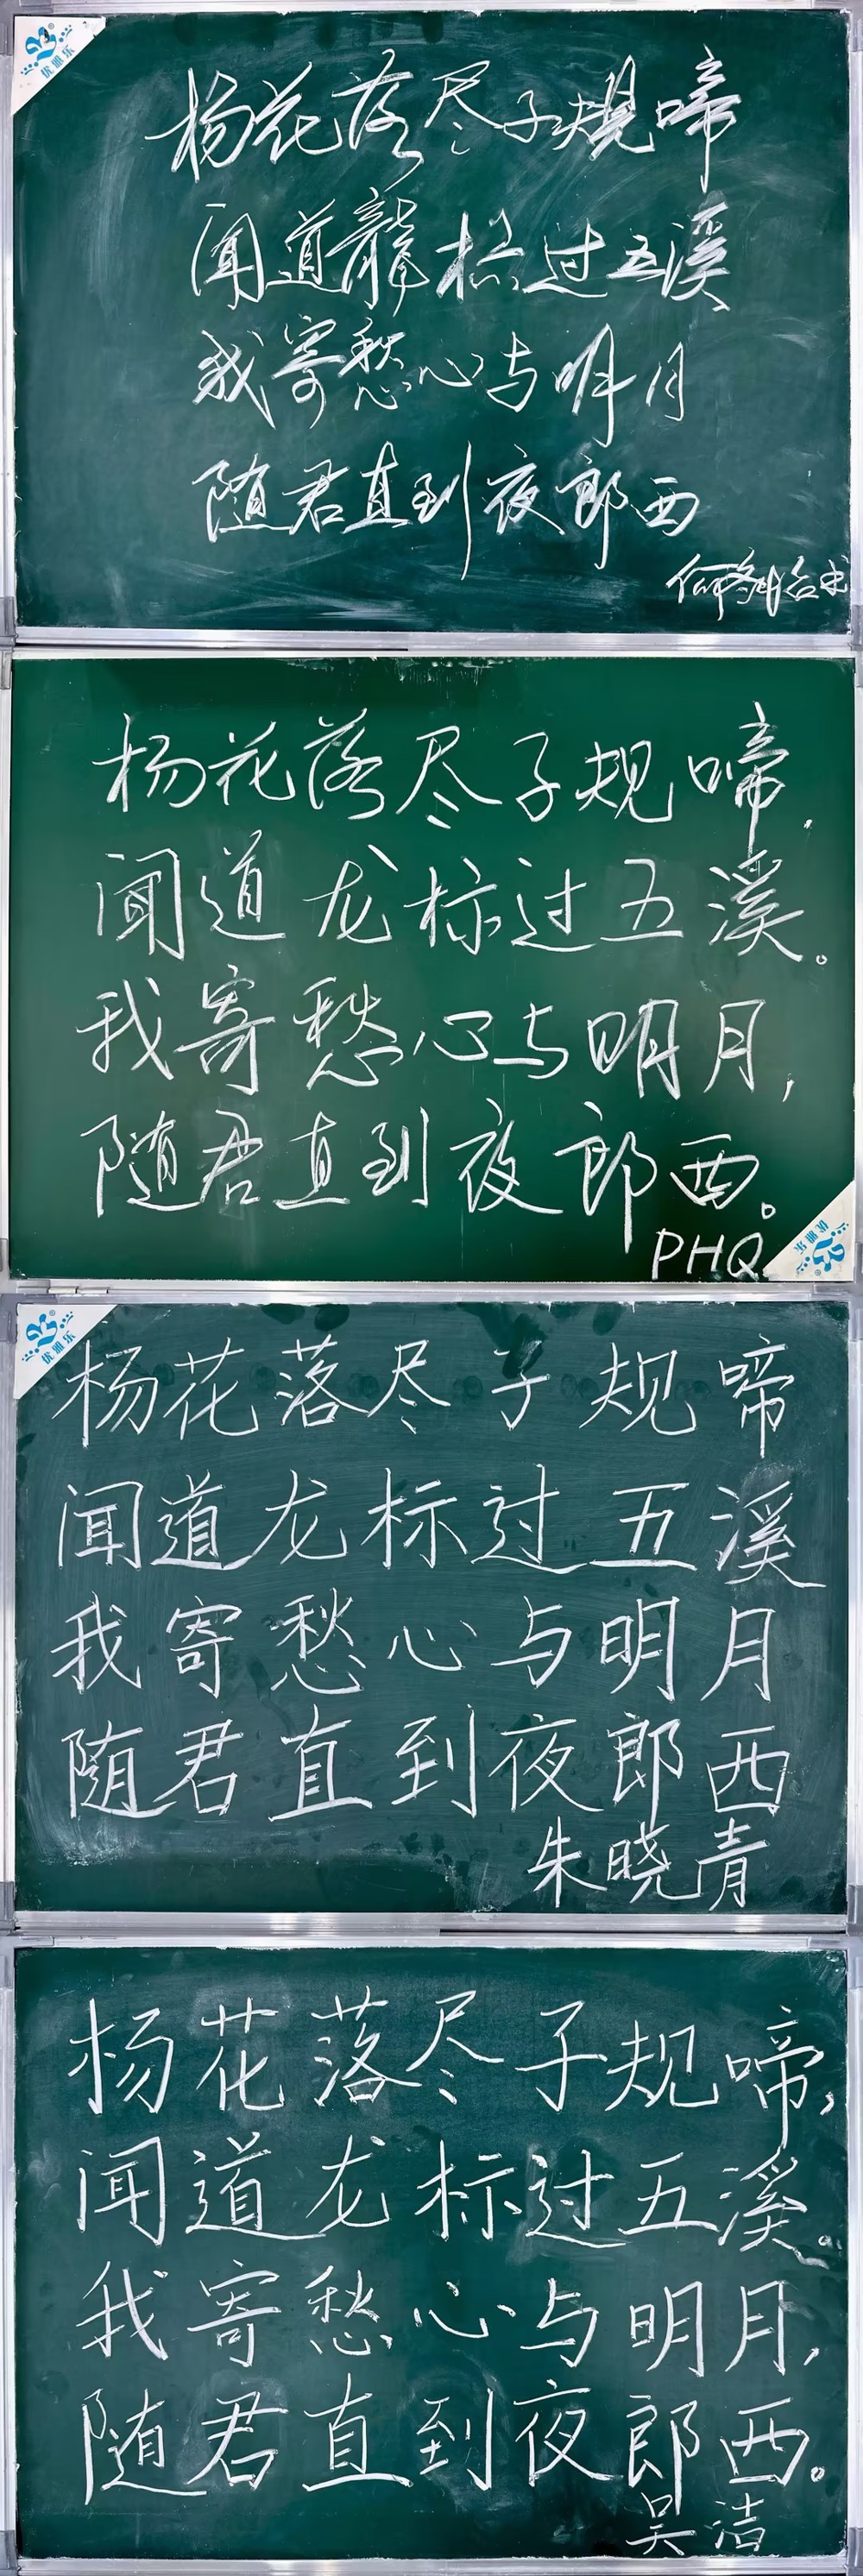 优雅乐
杨花落尽子規啼
闻道龍标过五溪
我寄愁心与明月
随君直到夜郎西
杨花落尽子规啼.
闻道龙标过五溪。
我寄愁心与明月,
随君直到夜郎西。
PHQ
优雅乐
优雅乐
杨花落尽子规啼
闻道龙标过五溪
我寄愁心与明月
随君直到夜郎西
朱晓青
杨花落尽子规啼,
闻道龙标过五溪。
我寄愁心与明月,
随君直到夜郎西。
吴洁